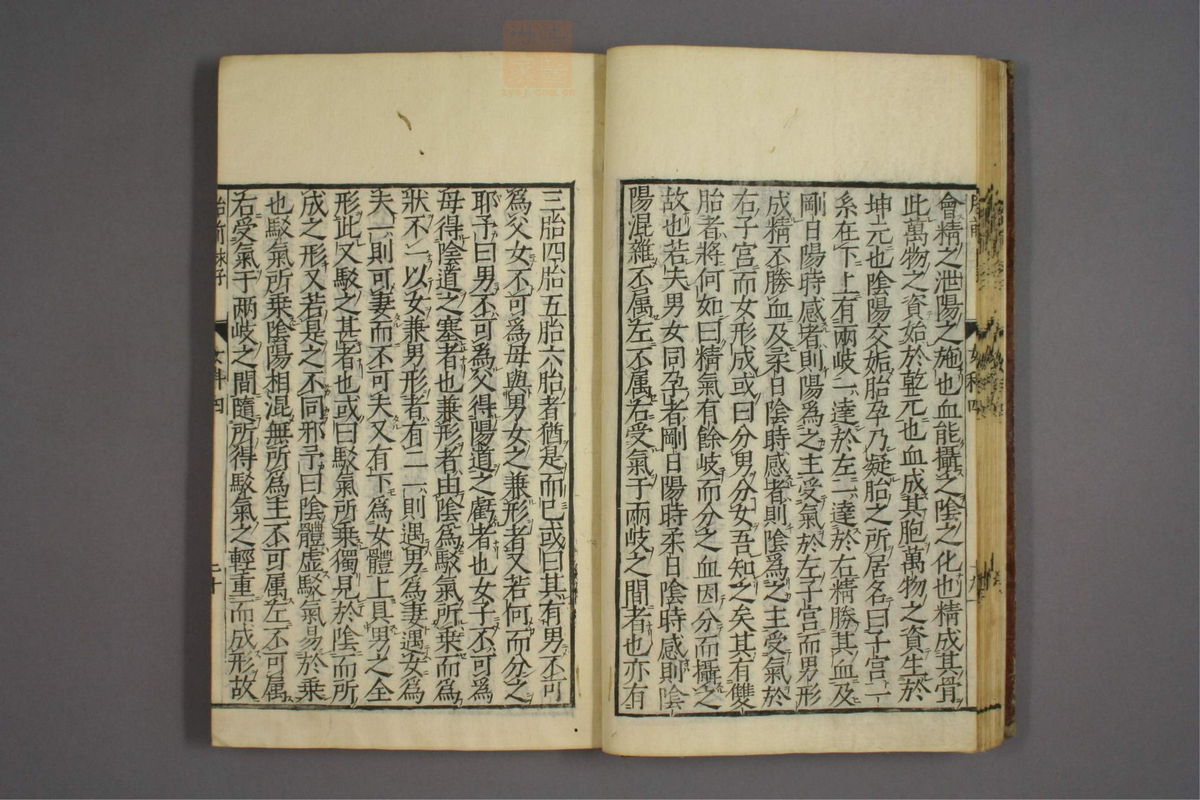 會精之泄陽之施也血能攝之陰之化也精成其骨
此萬物之資始於乾元也血成其胞萬物之資生於
坤元也陰陽交姤胎孕乃凝胎之所居名曰子宮一
系在下上有兩岐一達於左一達於右精勝其血及
剛日陽時感者則陽爲之主受氣於左子宮而男形
成精不勝血及柔日陰時感者則陰爲之主受氣於
右子宮而女形成或曰分男分女吾知之矣其有雙
胎者將何如曰精氣有餘岐而分之血因分而攝之
故也若夫男女同孕者剛日陽時柔日陰時感則陰
陽混雜不属左不属右受氣于兩岐之間者也亦有
三胎四胎五胎六胎者猶是而已或曰其有男不可
爲父女不可爲母與男女之兼形者又若何而分之
耶予曰男不可爲父得陽道之虧者也女子不可爲
母得陰道之塞者也兼形者由陰爲駁氣所乗而爲
狀不一以女兼男形者有二一則遇男爲妻遇女爲
夫一則可妻而不可夫又有下爲女體上具男之全
形此又駁之甚者也或曰駁氣所乗獨見於陰而所
成之形又若是之不同邪予曰陰體虛駁氣易於乗
也駁氣所乗陰陽相混無所爲主不可属左不可属
右受氣于兩岐之間隨所得駁氣之輕重而成形故
女科四
二十